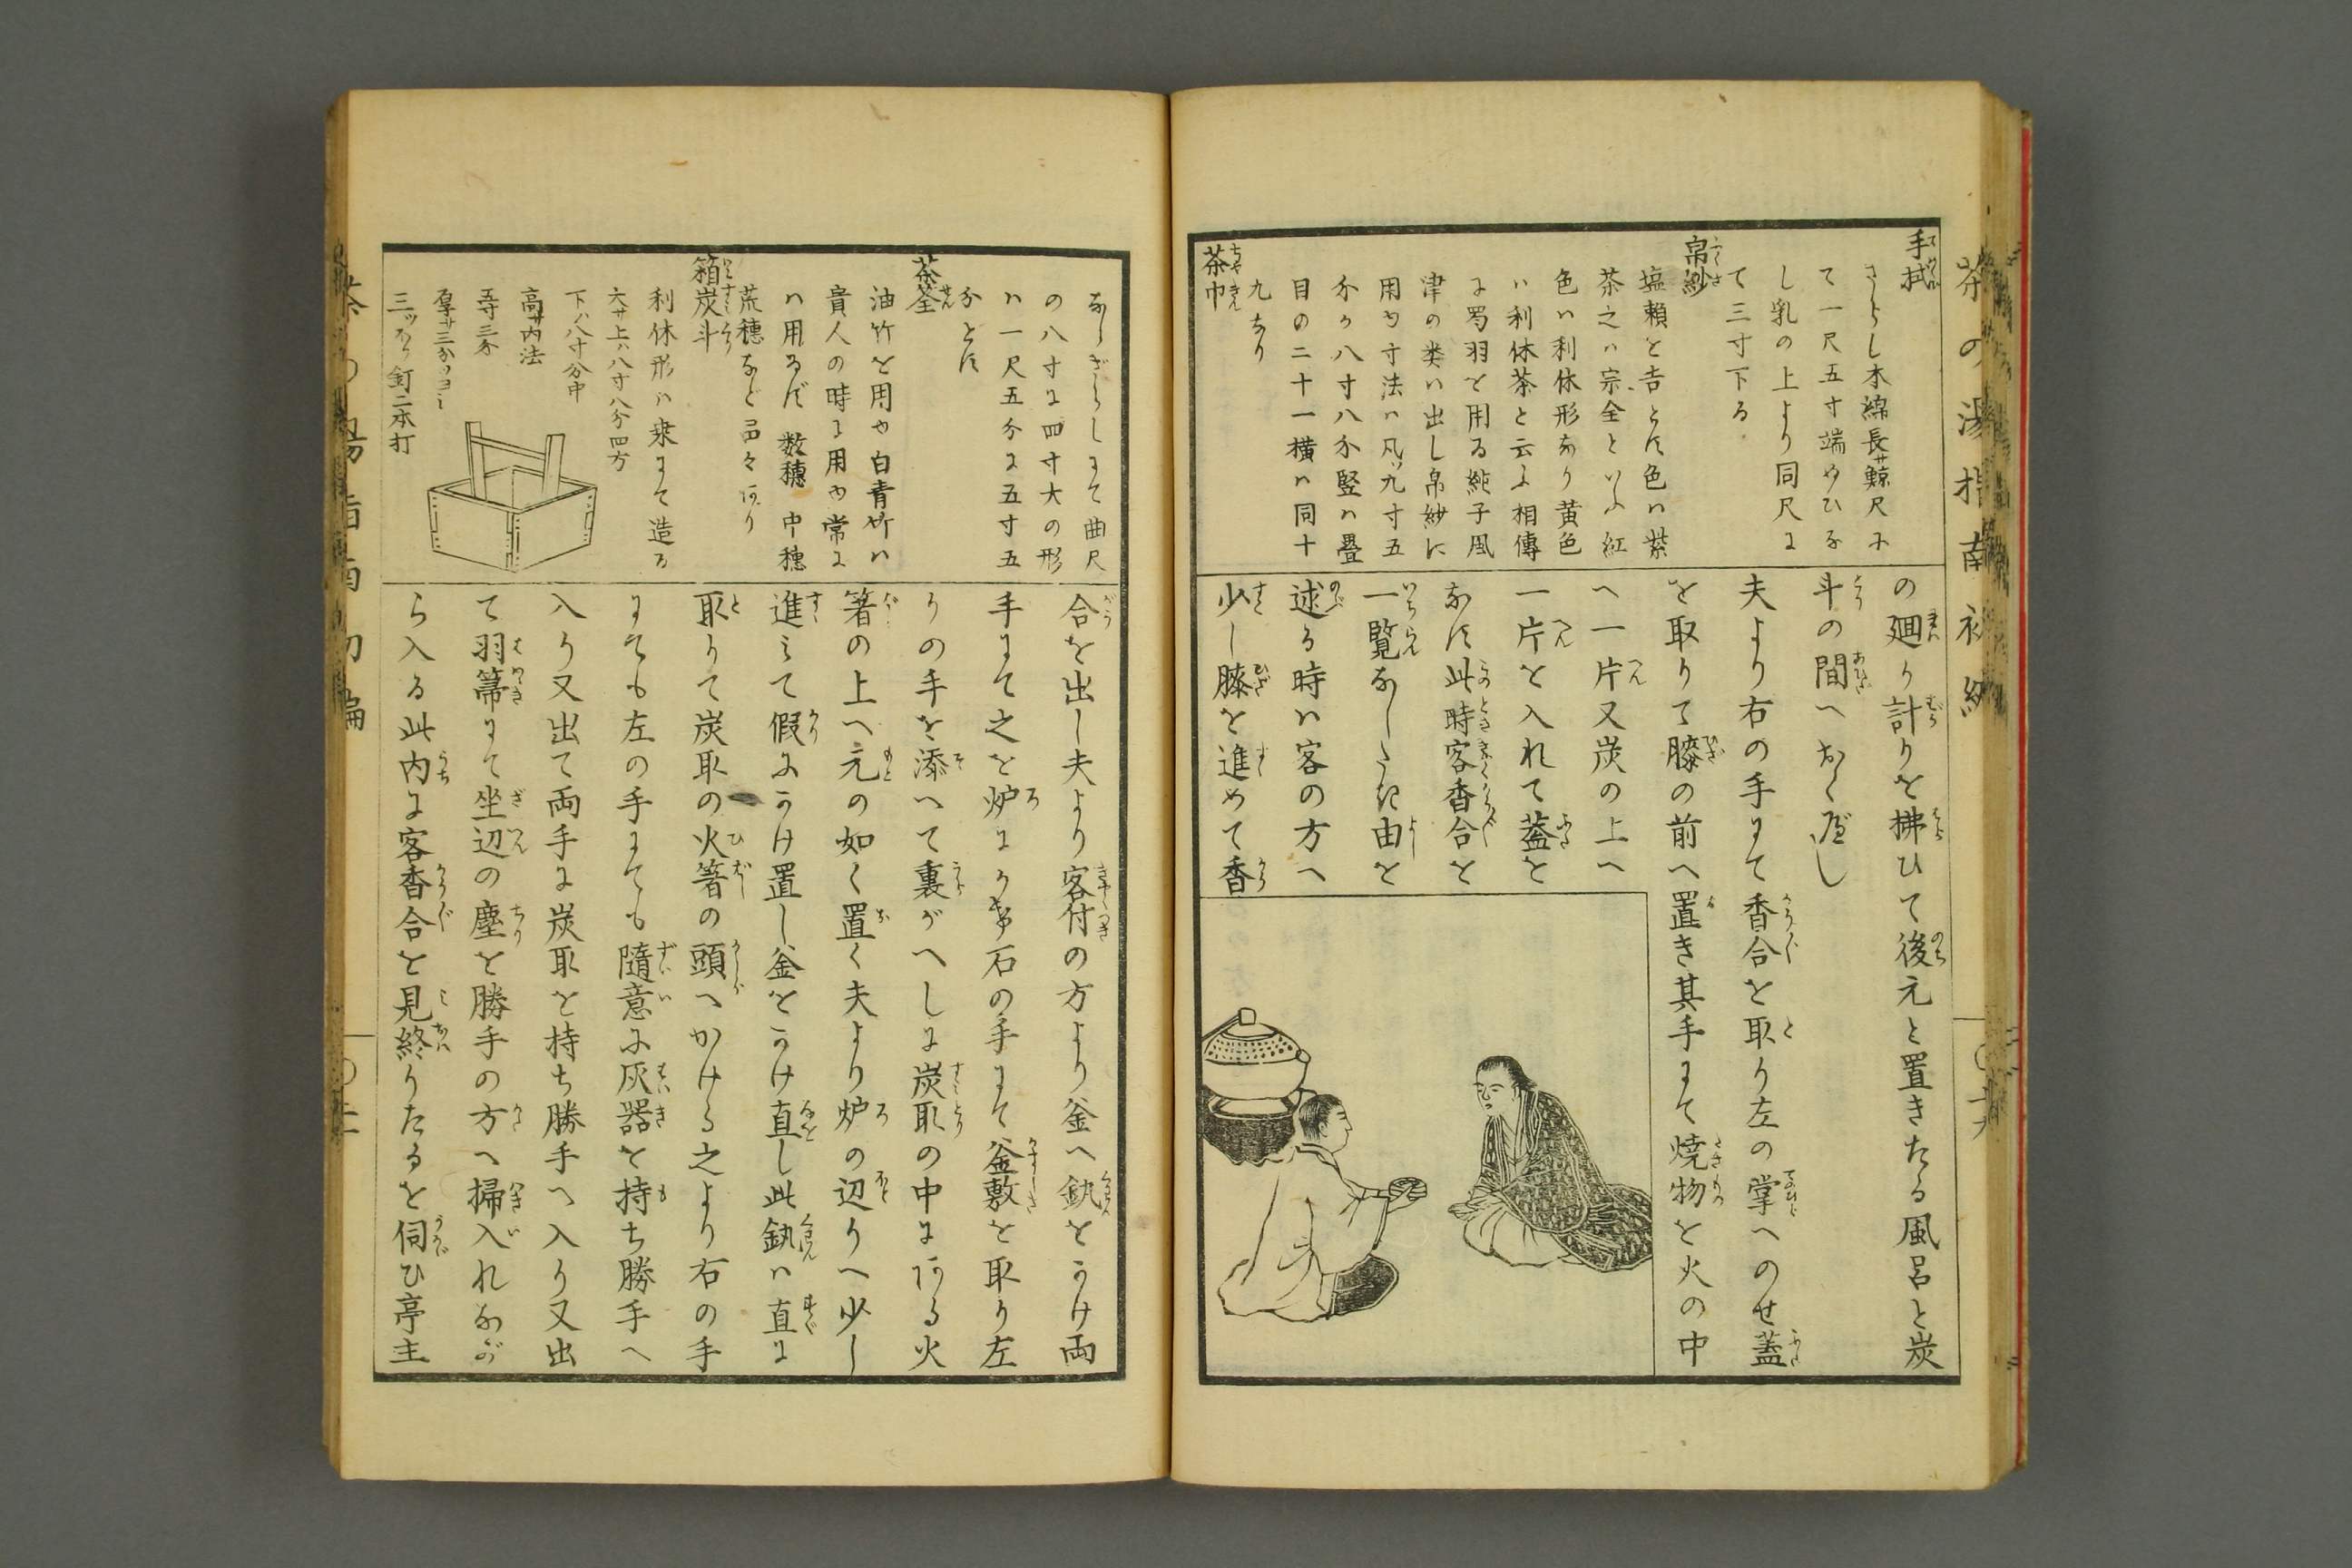 茶の湯指南
手拭
さらし木綿長サ鯨尺に
て一尺五寸端ぬひな
し乳の上より同尺に
て三寸下る
帛紗
塩瀬を吉とす色は紫
茶之は宗全といふ紅
色は利休形なり黄色
は利休茶と云ふ相傳
に蜀羽を用る純子風
津の类は出し帛紗に
用ゆ寸法は凡ソ九寸五
分か八寸八分竪は畳
目の二十一横は同十
九なり
茶巾
の廻り計りを拂ひて後元と置きたる風呂と炭
斗の間へおくべし
夫より右の手にて香合を取り左の掌へのせ蓋
を取りて膝の前へ置き其手にて焼物を火の中
へ一片又炭の上へ
一片を入れて蓋を
なす此時客香合を
一覧なしたき由を
述る時は客の方へ
少し膝を進めて香
ならざらしにて曲尺
の八寸に四寸大の形
は一尺五分に五寸五
分とす
茶筌
油竹を用ゆ白青竹は
貴人の時に用ゆ常に
は用るず数穂中穂
荒穂など品々あり
箱炭斗
利休形は桑にて造る
六サ上ハ八寸八分四方
下ハ八寸分中
高サ内法
五寸三分
厚サ三分
三ツなり釘二本打
合を出し夫より客付の方より釜へ釻をかけ両
手にて之を炉にかけ右の手にて釜敷を取り左
りの手を添へて裏がへしに炭取の中にある火
箸の上へ元の如く置く夫より炉の辺りへ少し
進みて假にかけ置し釜をかけ直し此釻は直に
取りて炭取の火箸の頭へかける之より右の手
にても左の手にても隨意に灰器を持ち勝手へ
入り又出て両手に炭取を持ち勝手へ入り又出
て羽箒にて坐辺の塵を勝手の方へ掃入れなが
ら入る此内に客香合を見終りたるを伺ひ亭主
茶の湯指南初編